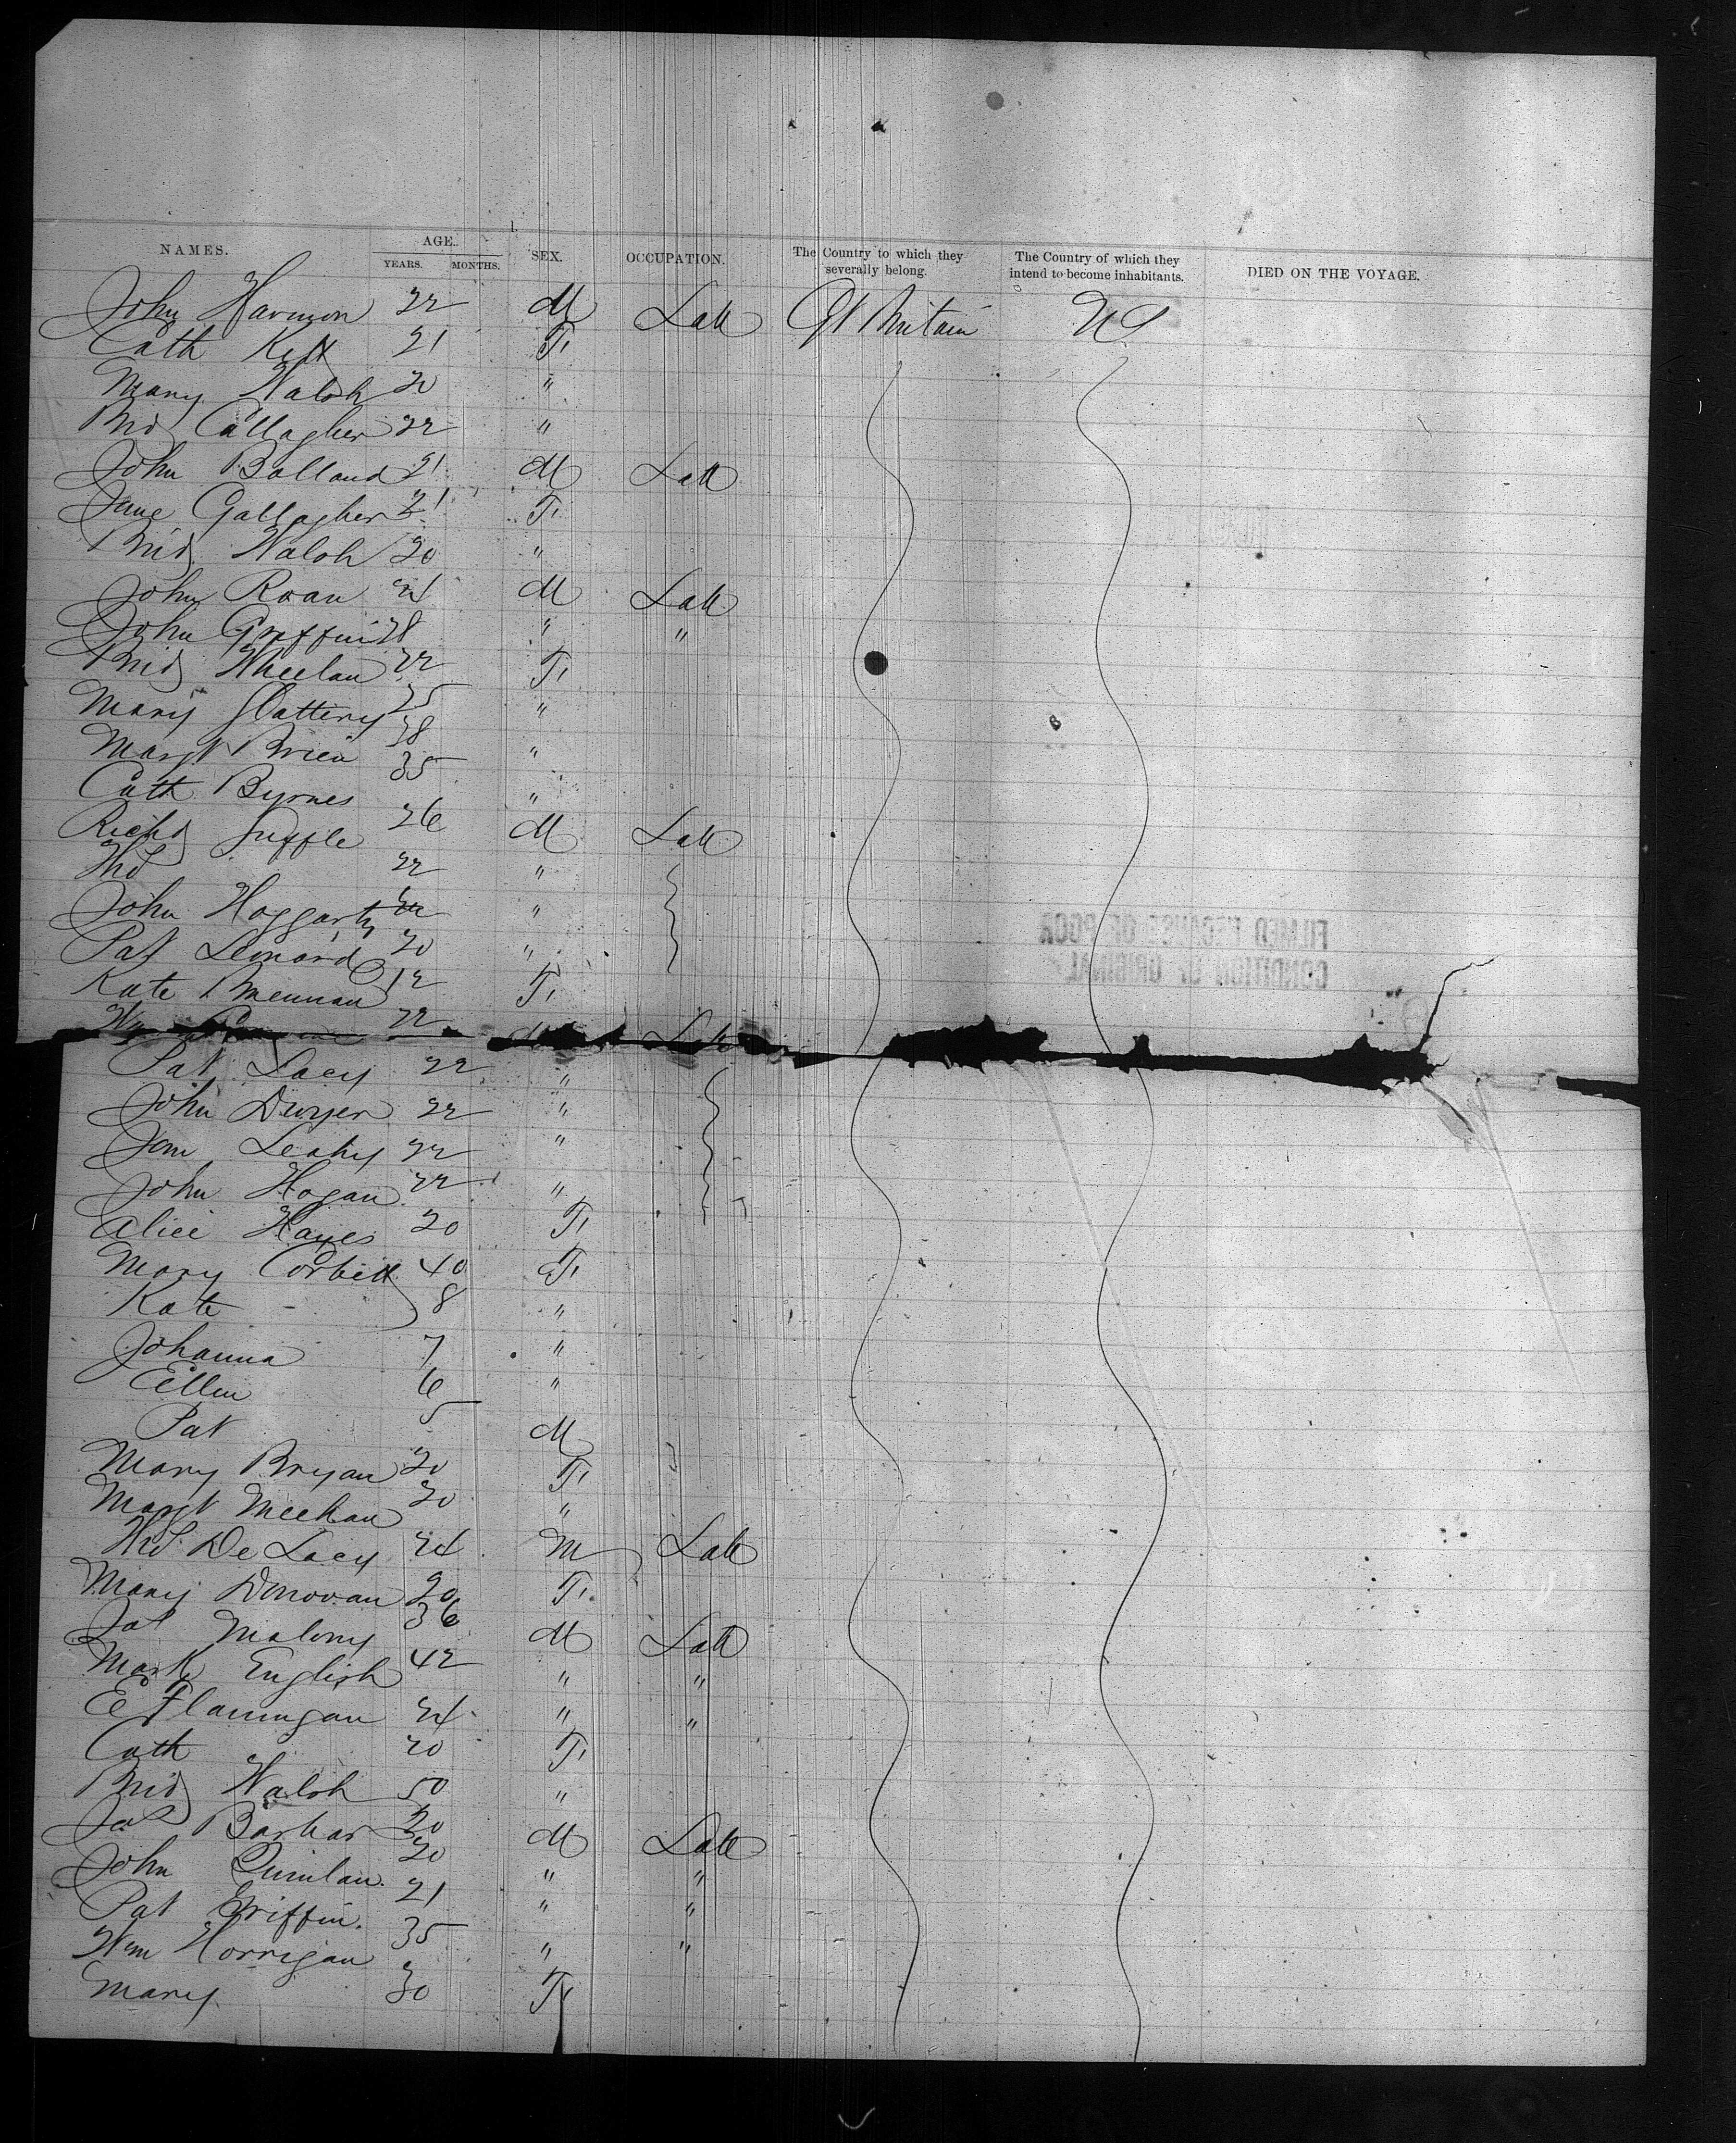 NAMES. AGE. YEARS. MONTHS. SEX. OCCUPATION. The Country to which they severally belong. The Country of which they intend to become inhabitants. DIED ON THE VOYAGE.
John Harmon 22 M Lab Gt Britain US
Cath 21 F
Mary Walsh 20 "
Brid Callagher 22 "
John Bolland 21 M Lab
Jane Gallagher 21 F
Brid Walsh 20 "
John Roan 24 M Lab
John Griffin 28 " "
Brid Wheelan 22 F
Mary Slattery 25 "
Margt Brien 38 "
Cath Byrnes 35 "
Richd 26 M Lab
Thos 22 "
John Hoggarty "
Pat Leonard 20 "
Kate Brennan 12 F
Wm 22 Lab
Pat Lacy 22 "
John Dwyer 22 "
Jom Leahy 22 "
John Hogan 22 "
Alice Hayes 20 F
Mary Corbett 40 F
Kate 8 "
Johanna 7 "
Ellen 6 "
Pat 5 M
Mary Bryan 20 F
Margt Meehan 20 "
Thos De Lacy 24 M Lab
Mary Donovan 20 F
Pat Malony 36 M Lab
Mark English 42 " "
Ed Flannigan 24 " "
Cath 20 F
Brid Walsh 50 "
Jas Barkar 20 M Lab
John Quinlan 20 " "
Pat Griffin. 21 " "
Wm Horrigan 35 " "
Mary 30 F
FILMED BECAUSE OF POOR
CONDITION OF ORIGINAL